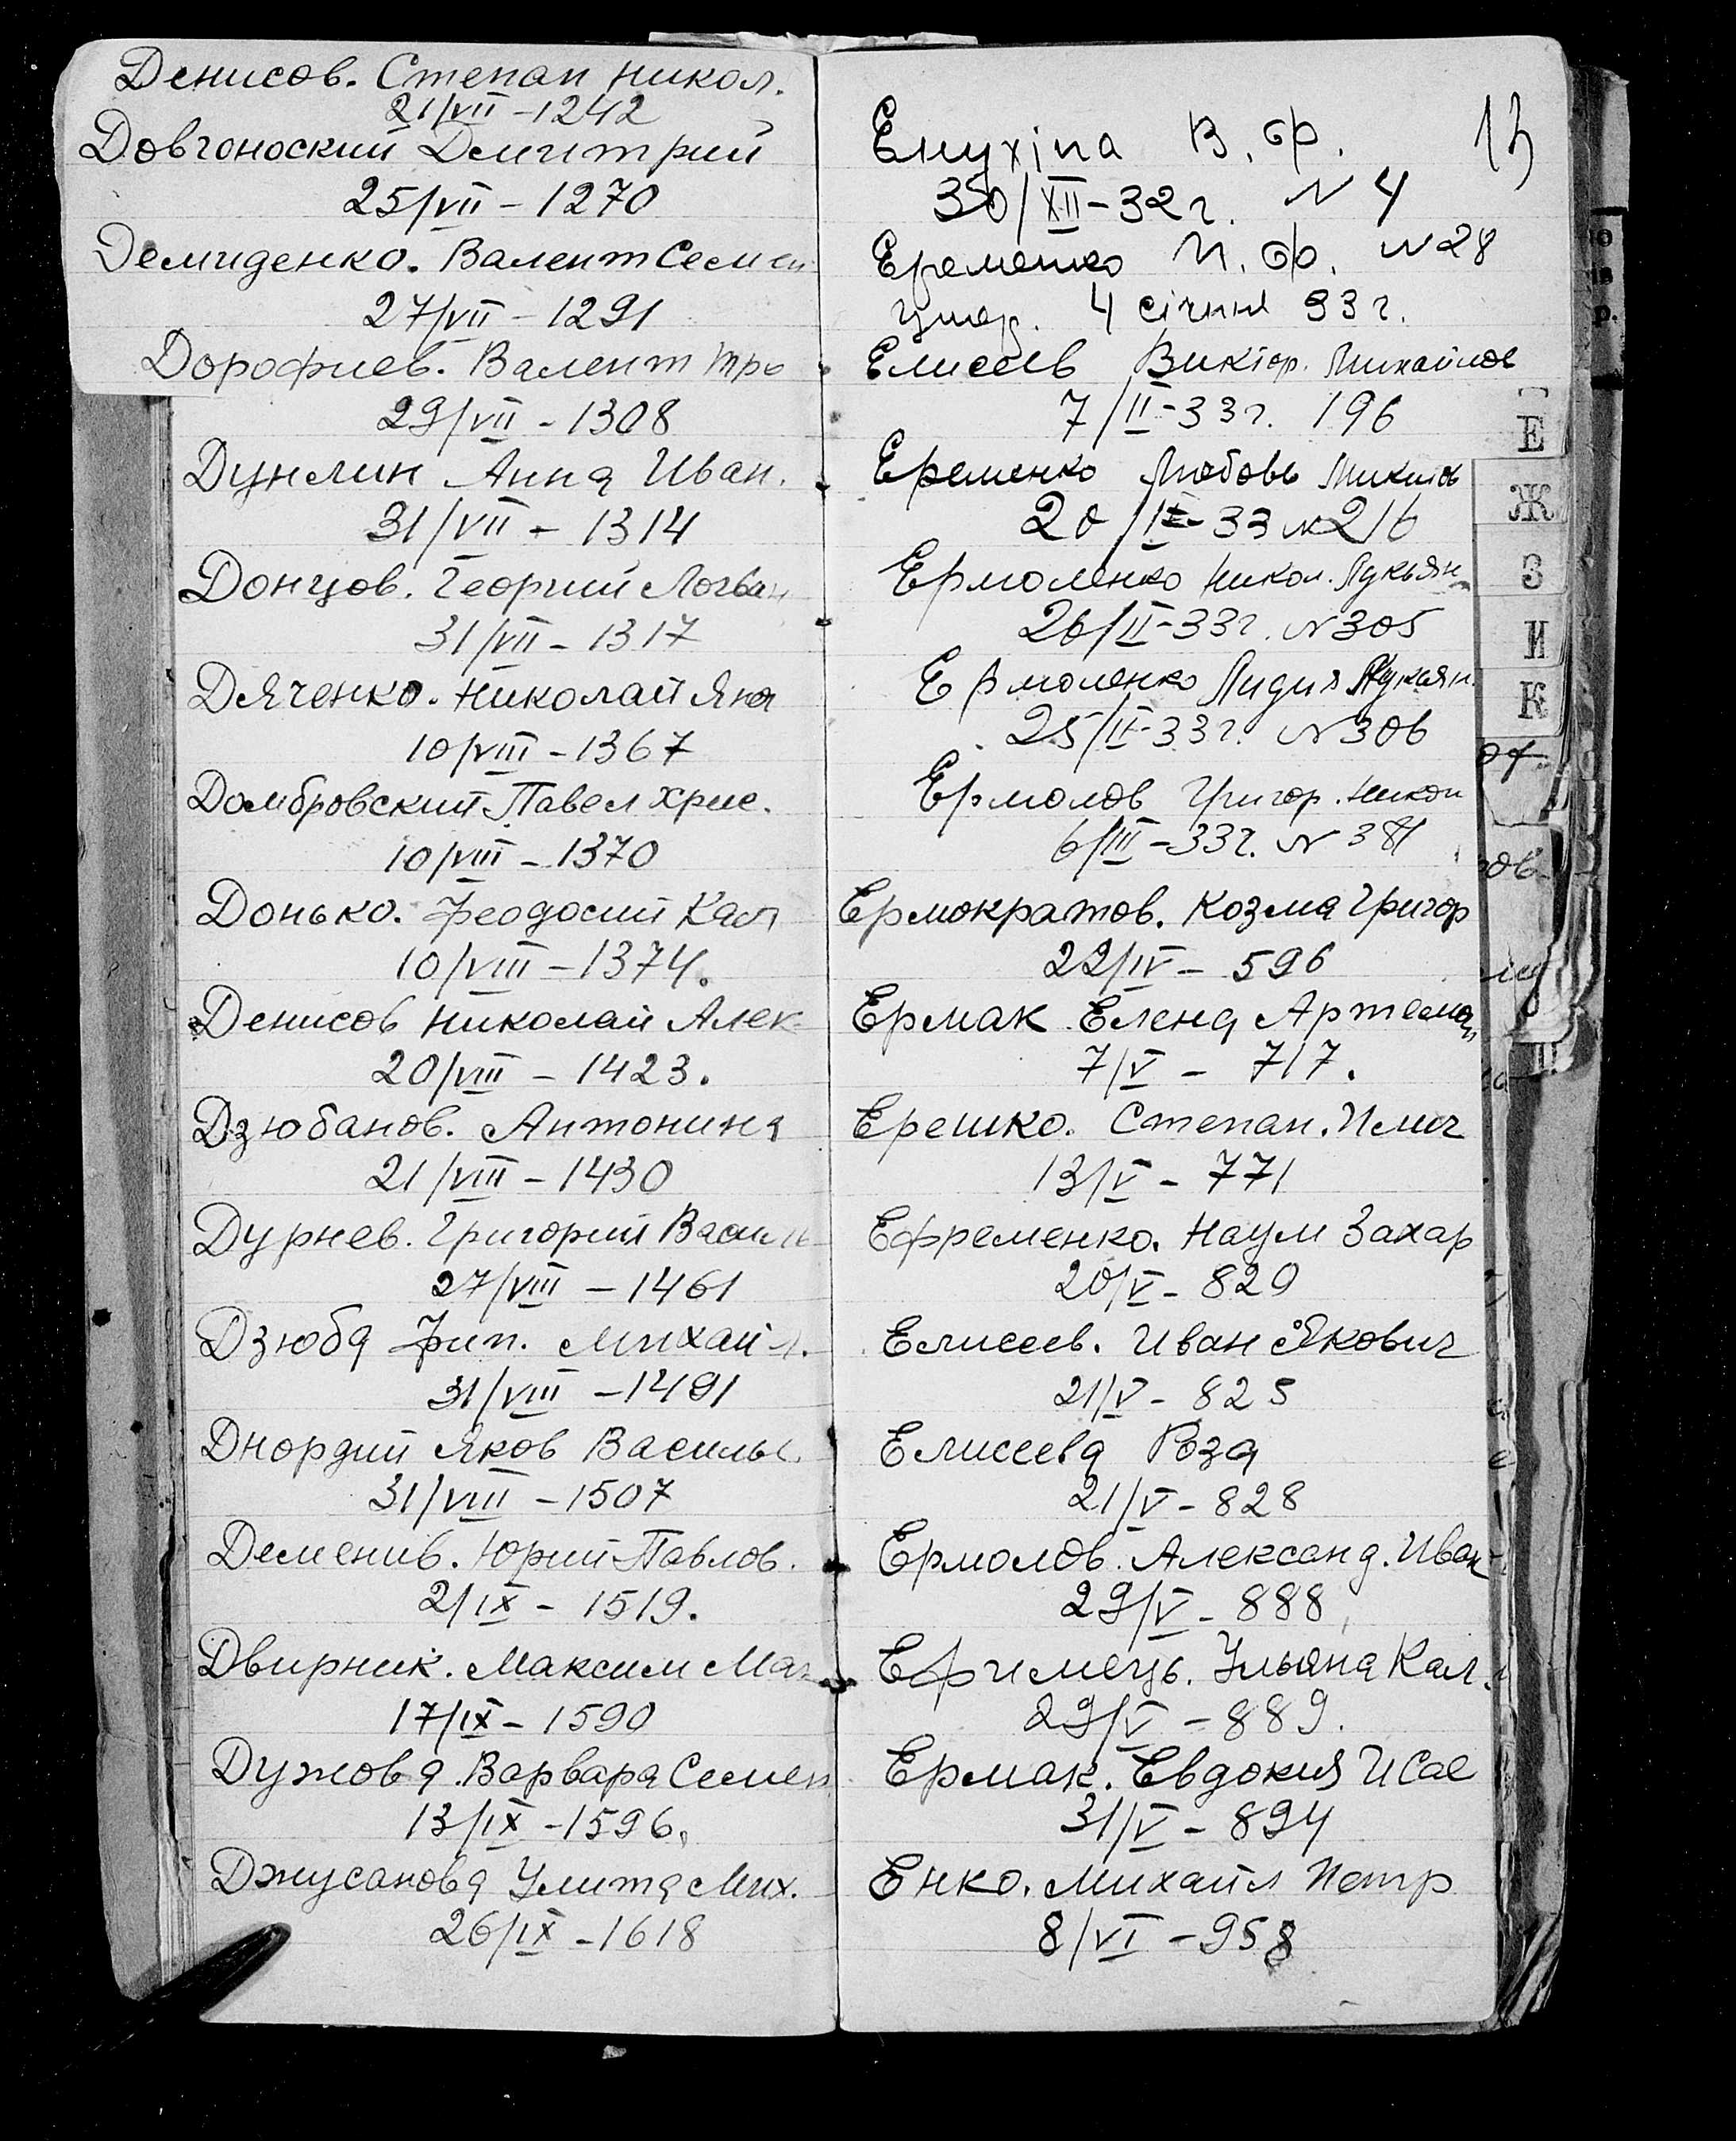 Денисов. Степан Никол.
21/VII - 1242
Довгоноский Дмитрий
25/VII - 1270
Демиденко. Валент Семен
27/VII - 1291
Дорофиев. Валент Тро
29/VII - 1308
Дунлин Анна Иван.
31/VII - 1314
Донцов. Георгий Логвин
31/VII - 1317
Дяченко. Николай Яков
10/VIII - 1367
Домбровский Павел Хрис.
10/VIII - 1370
Донько. Феодосий Кал
10/VIII - 1374.
Денисов Николай Алек
20/VIII - 1423.
Дзюбанов. Антонина
21/VIII - 1430
Дурнев. Григорий Василь
27/VIII - 1461
Дзюба Фил. Михайл.
31/VIII - 1491
Яков Василье.
31/VIII - 1507
Деменив. Юрий Павлов.
2/IX - 1519.
Двирник. Максим
17/IX - 1590
Дужова. Варвара Семен
13/IX - 1596.
Джусанова Улита Мих.
26/IX - 1618
13
Енухіна В. ф.
30/XII - 32 г. N 4
Еременко И. ф. N 28
умер. 4 січня 33 г.
Елисеев Виктор. Михайлов
7/II - 33 г. 196
Еременко Любовь Микитов
20/II - 33 N 216
Ермоленко Никол. Лукьян
26/II - 33 г. N 305
Ермоленко Лидия Лукьян.
25/II - 33 г. N 306
Ермолов Григор. Никол
6/III - 33 г. N 381
Ермократов. Козма Григор
22/IV - 596
Ермак Елена Артемов
7/V - 717.
Ерешко. Степан. Илич
13/V - 771
Ефременко. Наум Захар
20/V - 829
Елисеев. Иван Якович
21/V - 825
Елисеева Роза
21/V - 828
Ермолов. Александ. Иван
29/V - 888
Ефимець. Ульяна Кал.
29/V - 889.
Ермак. Евдокия Исае
31/V - 894
Енко. Михайл Петр
8/VI - 958
Е
Ж
З
И
К